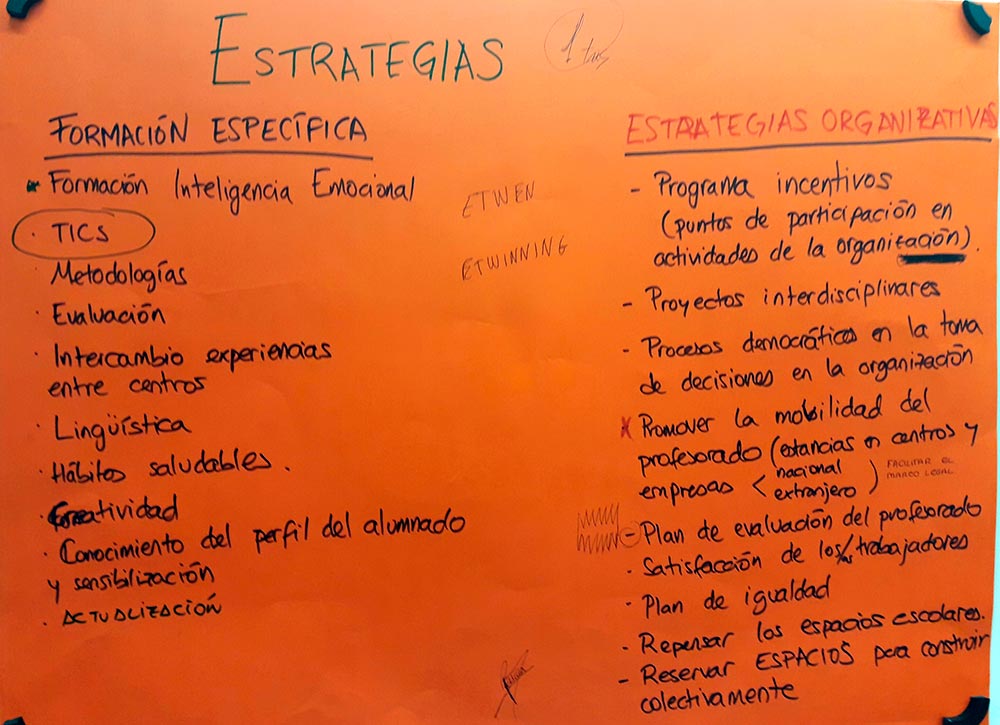 ESTRATEGIAS
FORMACIÓN ESPECÍFICA
* Formación Inteligencia Emocional
· TICS
· Metodologías
· Evaluación
· Intercambio experiencias
entre centros
· Lingüística
· Hábitos saludables.
· Creatividad
· Conocimiento del perfil del alumnado
y sensibilización
· ACTUALIZACIÓN
ETWEN
ETWINNING
ESTRATEGIAS ORGANIZATIVAS
- Programa incentivos
(puntos de participación en
actividades de la organización).
- Proyectos interdisciplinares
- Procesos democráticos en la toma
de decisiones en la organización
x Promover la mobilidad del
profesorado (estancias en centros y
empresas < nacional
extranjero )
FACILITAR EL
MARCO LEGAL
- Plan de evaluación del profesorado
· Satisfacción de los/as trabajadores
· Plan de igualdad
- Repensar los espacios escolares.
- Reservar ESPACIOS para construir
colectivamente